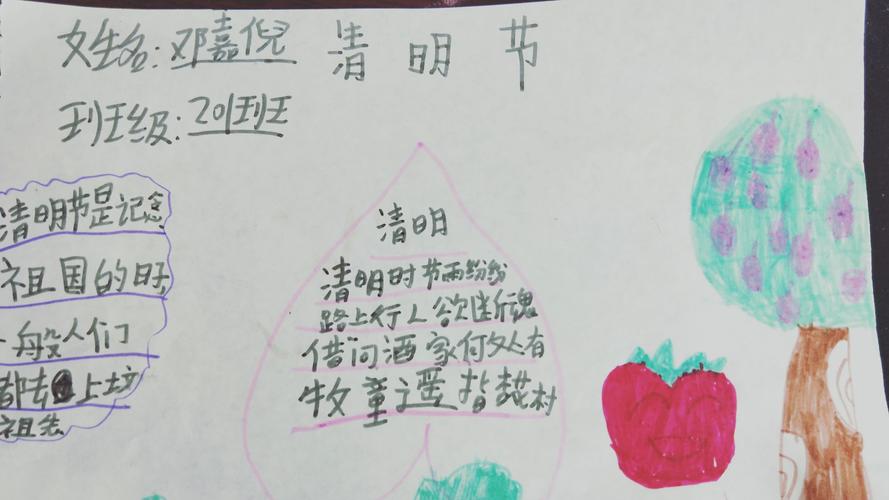 姓名:邓嘉倪
清明节
班级:201班
清明节是记念
祖国的日子,
一般人们
都去上坟
祖先
清明
清明时节雨纷纷
路上行人欲断魂
借问酒家何处有
牧童遥指杏花村